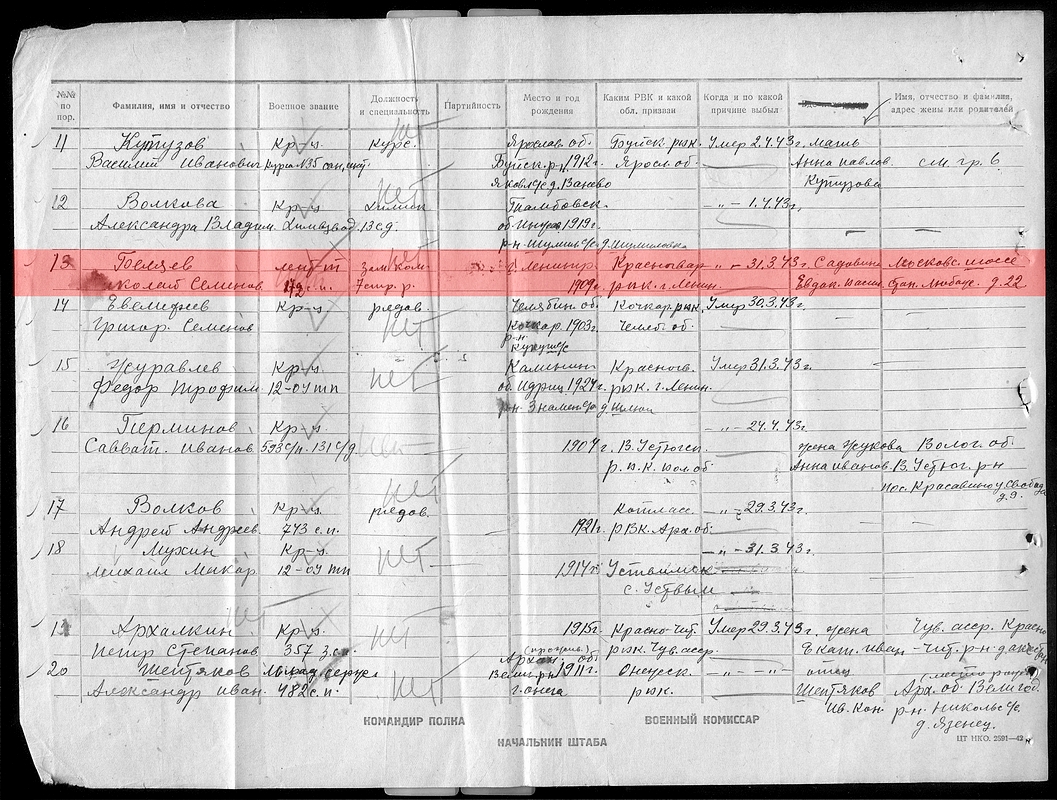 №№ по пор. Фамилия, имя и отчество Военное звание Должность и специальность Партийность Место и год рождения Каким РВК и какой обл. призван Когда и по какой причине выбыл Имя, отчество и фамилия, адрес жены или родителей
11 Кутузов Кр-ц курс. нет Яросл. об. Буйск. рвк Умер 2.4.43г. мать
Василий Иванович Буйск. р-н 1912г. Яросл. об. Анна Павлов. см. гр. 6
д. Ваново Кутузова
12 Волкова Кр-ц химик нет Тамбовск. -"- 1.4.43г.
Александра Владим. 13 сд. 1919г.
13 Беляев лейт-т зам. ком. г. Ленингр. Красногвар -"- 31.3.43г. Московс. шоссе
Николай Семенов. 1909г. рвк. г. Ленин. Евдок. Васил. д. 22
14 Кр-ц рядов. Челябин. об. Кочкар. рвк. Умер 30.3.43г.
Григор. Семенов нет Кочкар. 1903г. Челяб. об.
р-н
с/с
15 Журавлев Кр-ц нет Калинин Красногв. Умер 31.3.43г.
Федор Трофим. 12-ОУ тп 1924г. рвк. г. Ленин.
р-н Знамен с/с д.
16 Перминов Кр-ц -"- 24.4.43г.
Савват. Иванов. 593 с/п. 131 с/д. нет 1904г. В. Устюгск. жена Жукова Волог. об.
р. в. к. Вол. об. Анна Иванов. В. Устюг. р-н
пос. Красавино у. Свобода
д. 9.
17 Волков Кр-ц рядов. нет Котласс. -"- 29.3.43г.
Андрей Андреев. 743 с.п. 1921г. рвк. Арх. об.
18 Мухин Кр-ц нет -"- 31.3.43г.
Михаил Макар. 12-ОУ тп 1914г. Устьвымск
с. Устьвым
19 Архалкин Кр-ц нет 1915г. Красно-Чет. Умер 29.3.43г. жена Чув. асср. Красно
Петр Степанов 357 з.с.п. рвк. Чув. асср. Екат. Ивец -Чет. р-н
20 Шептяков Мл. сержс нет Архан. об. 1911г. Онежск. -"- отец
Александр Иван. 482 с.п. г. Онега рвк. Шептяков Арх. об. Велигод.
Ив. Кон. р-н. Никольс с/с.
д. Язенец.
КОМАНДИР ПОЛКА ВОЕННЫЙ КОМИССАР
НАЧАЛЬНИК ШТАБА
ЦТ НКО. 2591—42